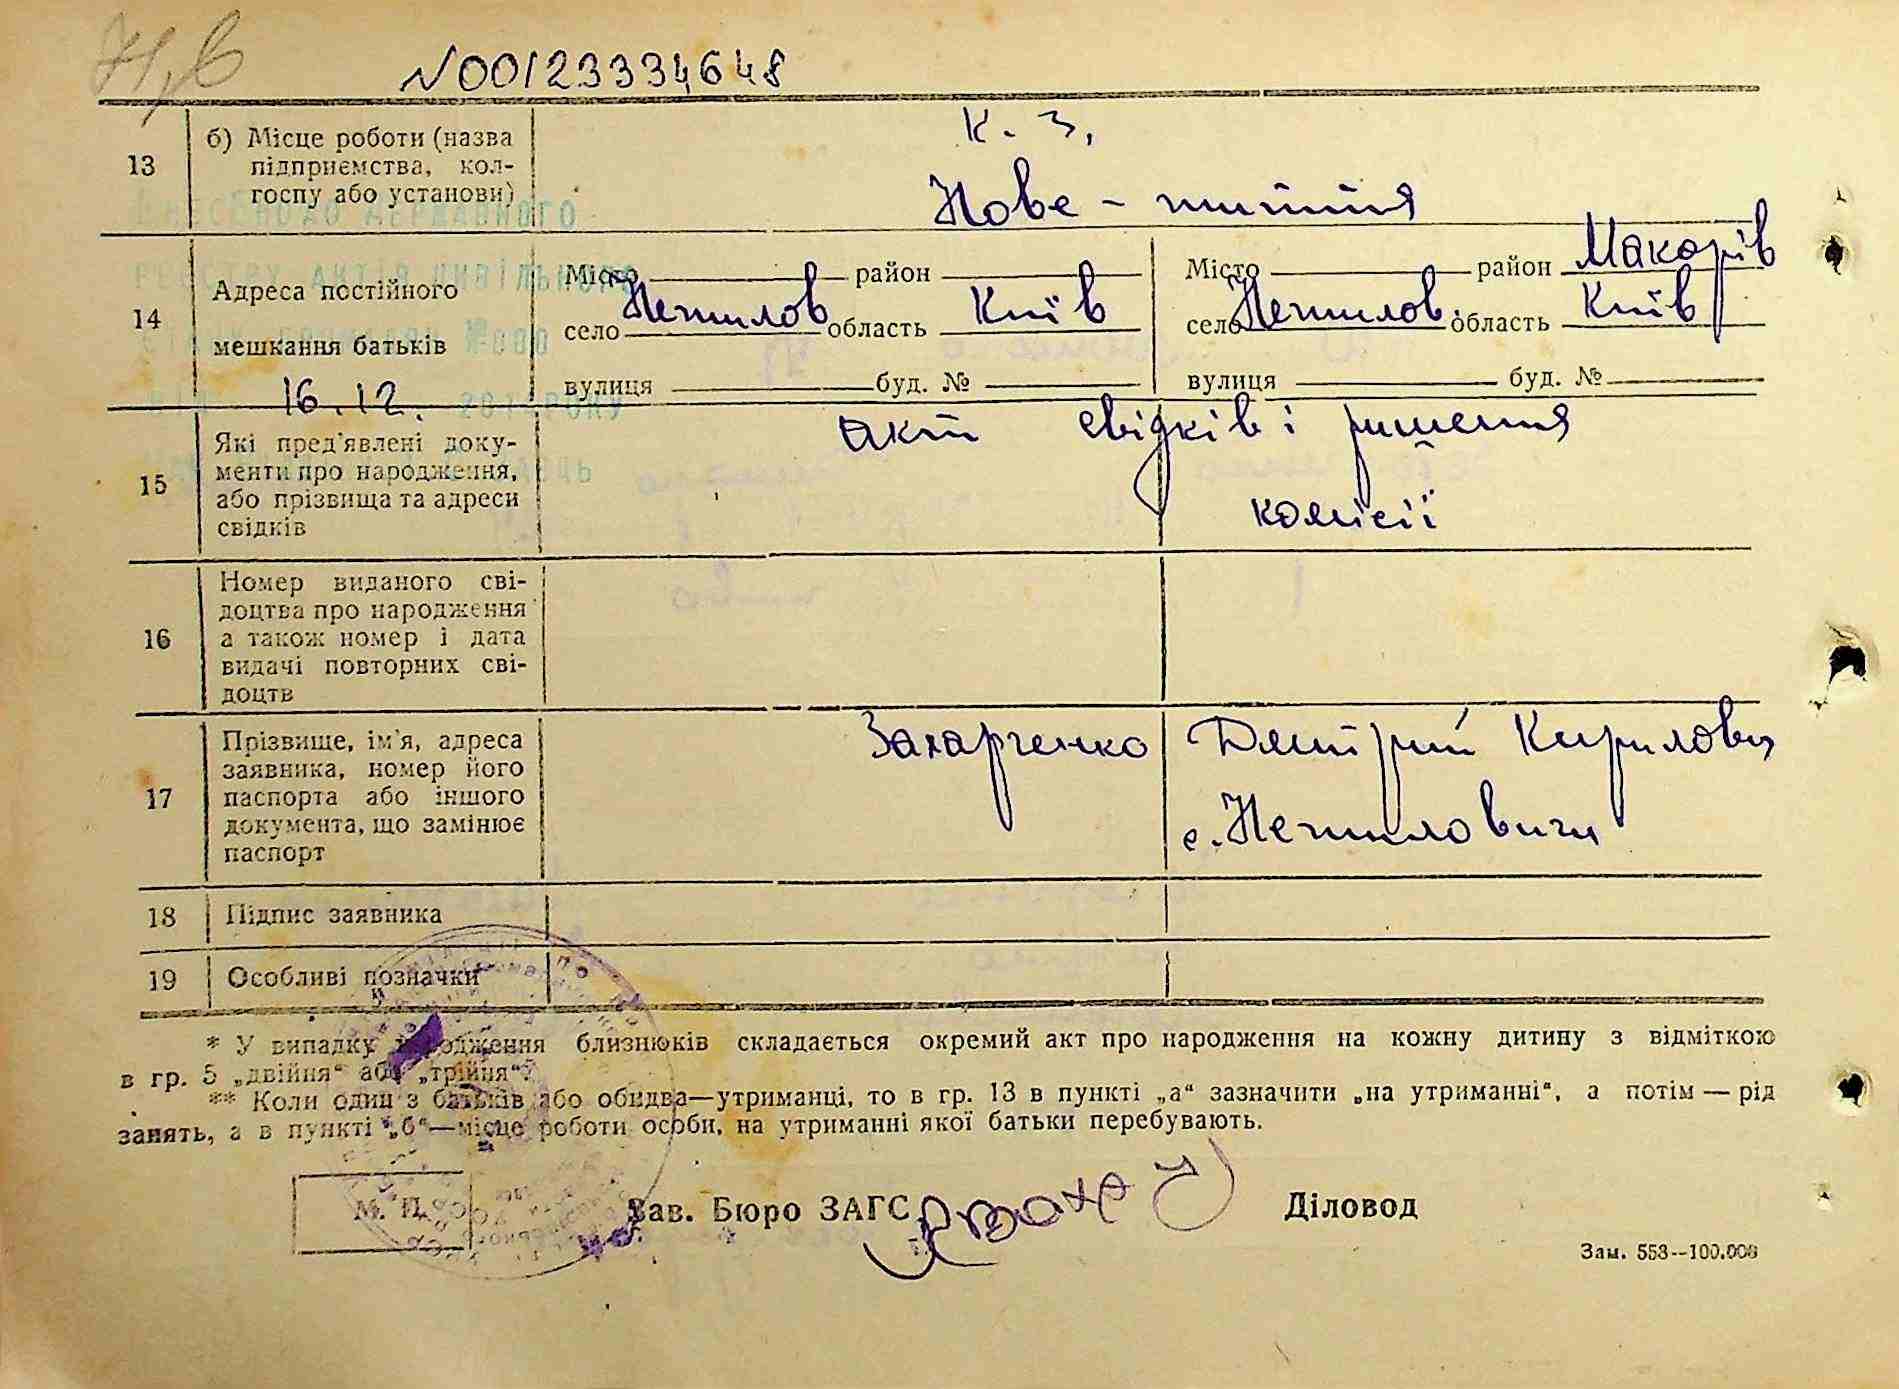 N00123334648
13
б) Місце роботи (назва
підприємства, кол-
госпу або установи)
К. З,
Нове - життя
ВНЕСЕНО ДО ДЕРЖАВНОГО
РЕЄСТРУ АКТІВ ЦИВІЛЬНОГО
16.12.
14
Адреса постійного
мешкання батьків
Місто район
село Нежилов область Київ
вулиця буд. №
Місто район Макарів
село Нежилов. область Київ
вулиця буд. №
15
Які пред'явлені доку-
менти про народження,
або прізвища та адреси
свідків
акт свідків і ришення
комісії
16
Номер виданого сві-
доцтва про народження
а також номер і дата
видачі повторних сві-
доцтв
17
Прізвище, ім'я, адреса
заявника, номер його
паспорта або іншого
документа, що замінює
паспорт
Захарченко Дмитрий Кирилович
с. Нежиловичи
18
Підпис заявника
19
Особливі позначки
* У випадку народження близнюків складається окремий акт про народження на кожну дитину з відміткою
в гр. 5 „двійня“ або „трійня“.
** Коли один з батьків або обидва—утриманці, то в гр. 13 в пункті „а“ зазначити „на утриманні“, а потім — рід
занять, а в пункті „б“—місце роботи особи, на утриманні якої батьки перебувають.
М. П.
Зав. Бюро ЗАГС
Діловод
Зам. 553--100.000